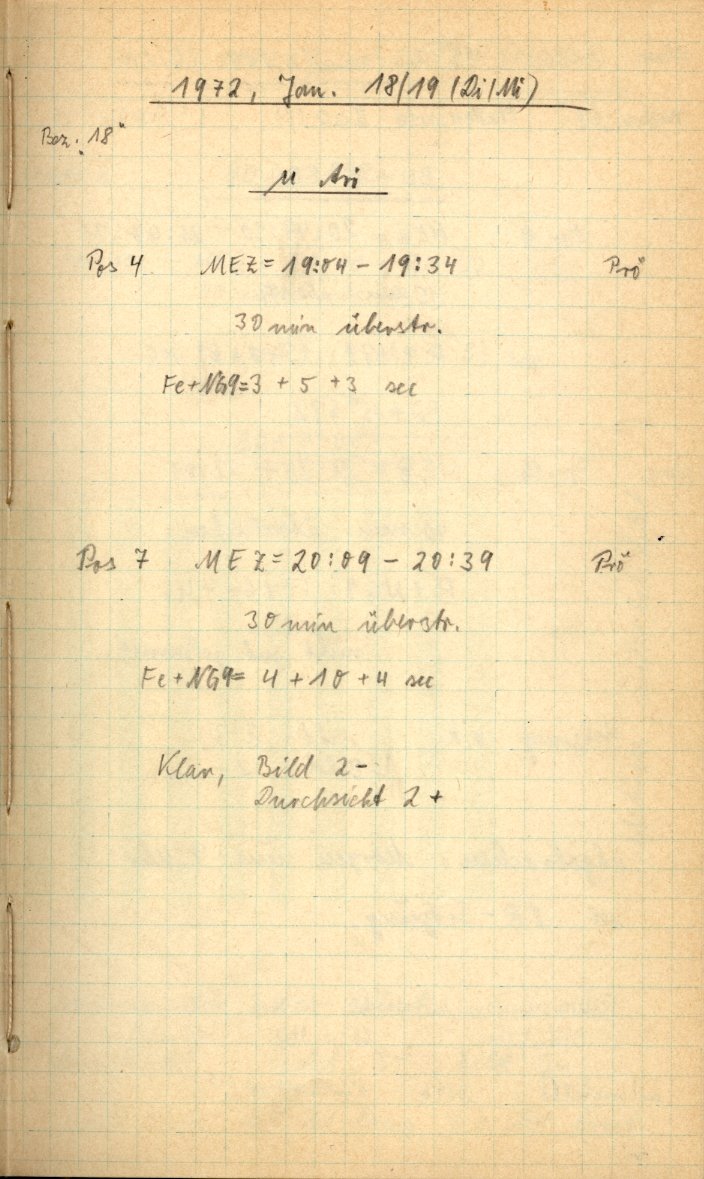 1972, Jan. 18/19 (Di/Mi)
Bez. "18"
u Ari
Pos 4 MEZ = 19:04 - 19:34 Prö
30 min überstr.
Fe+NG9=3 + 5 + 3 sec
Pos 7 MEZ = 20:09 - 20:39 Prö
30 min überstr.
Fe+NG9= 4 + 10 + 4 sec
Klar, Bild 2-
Durchsicht 2+